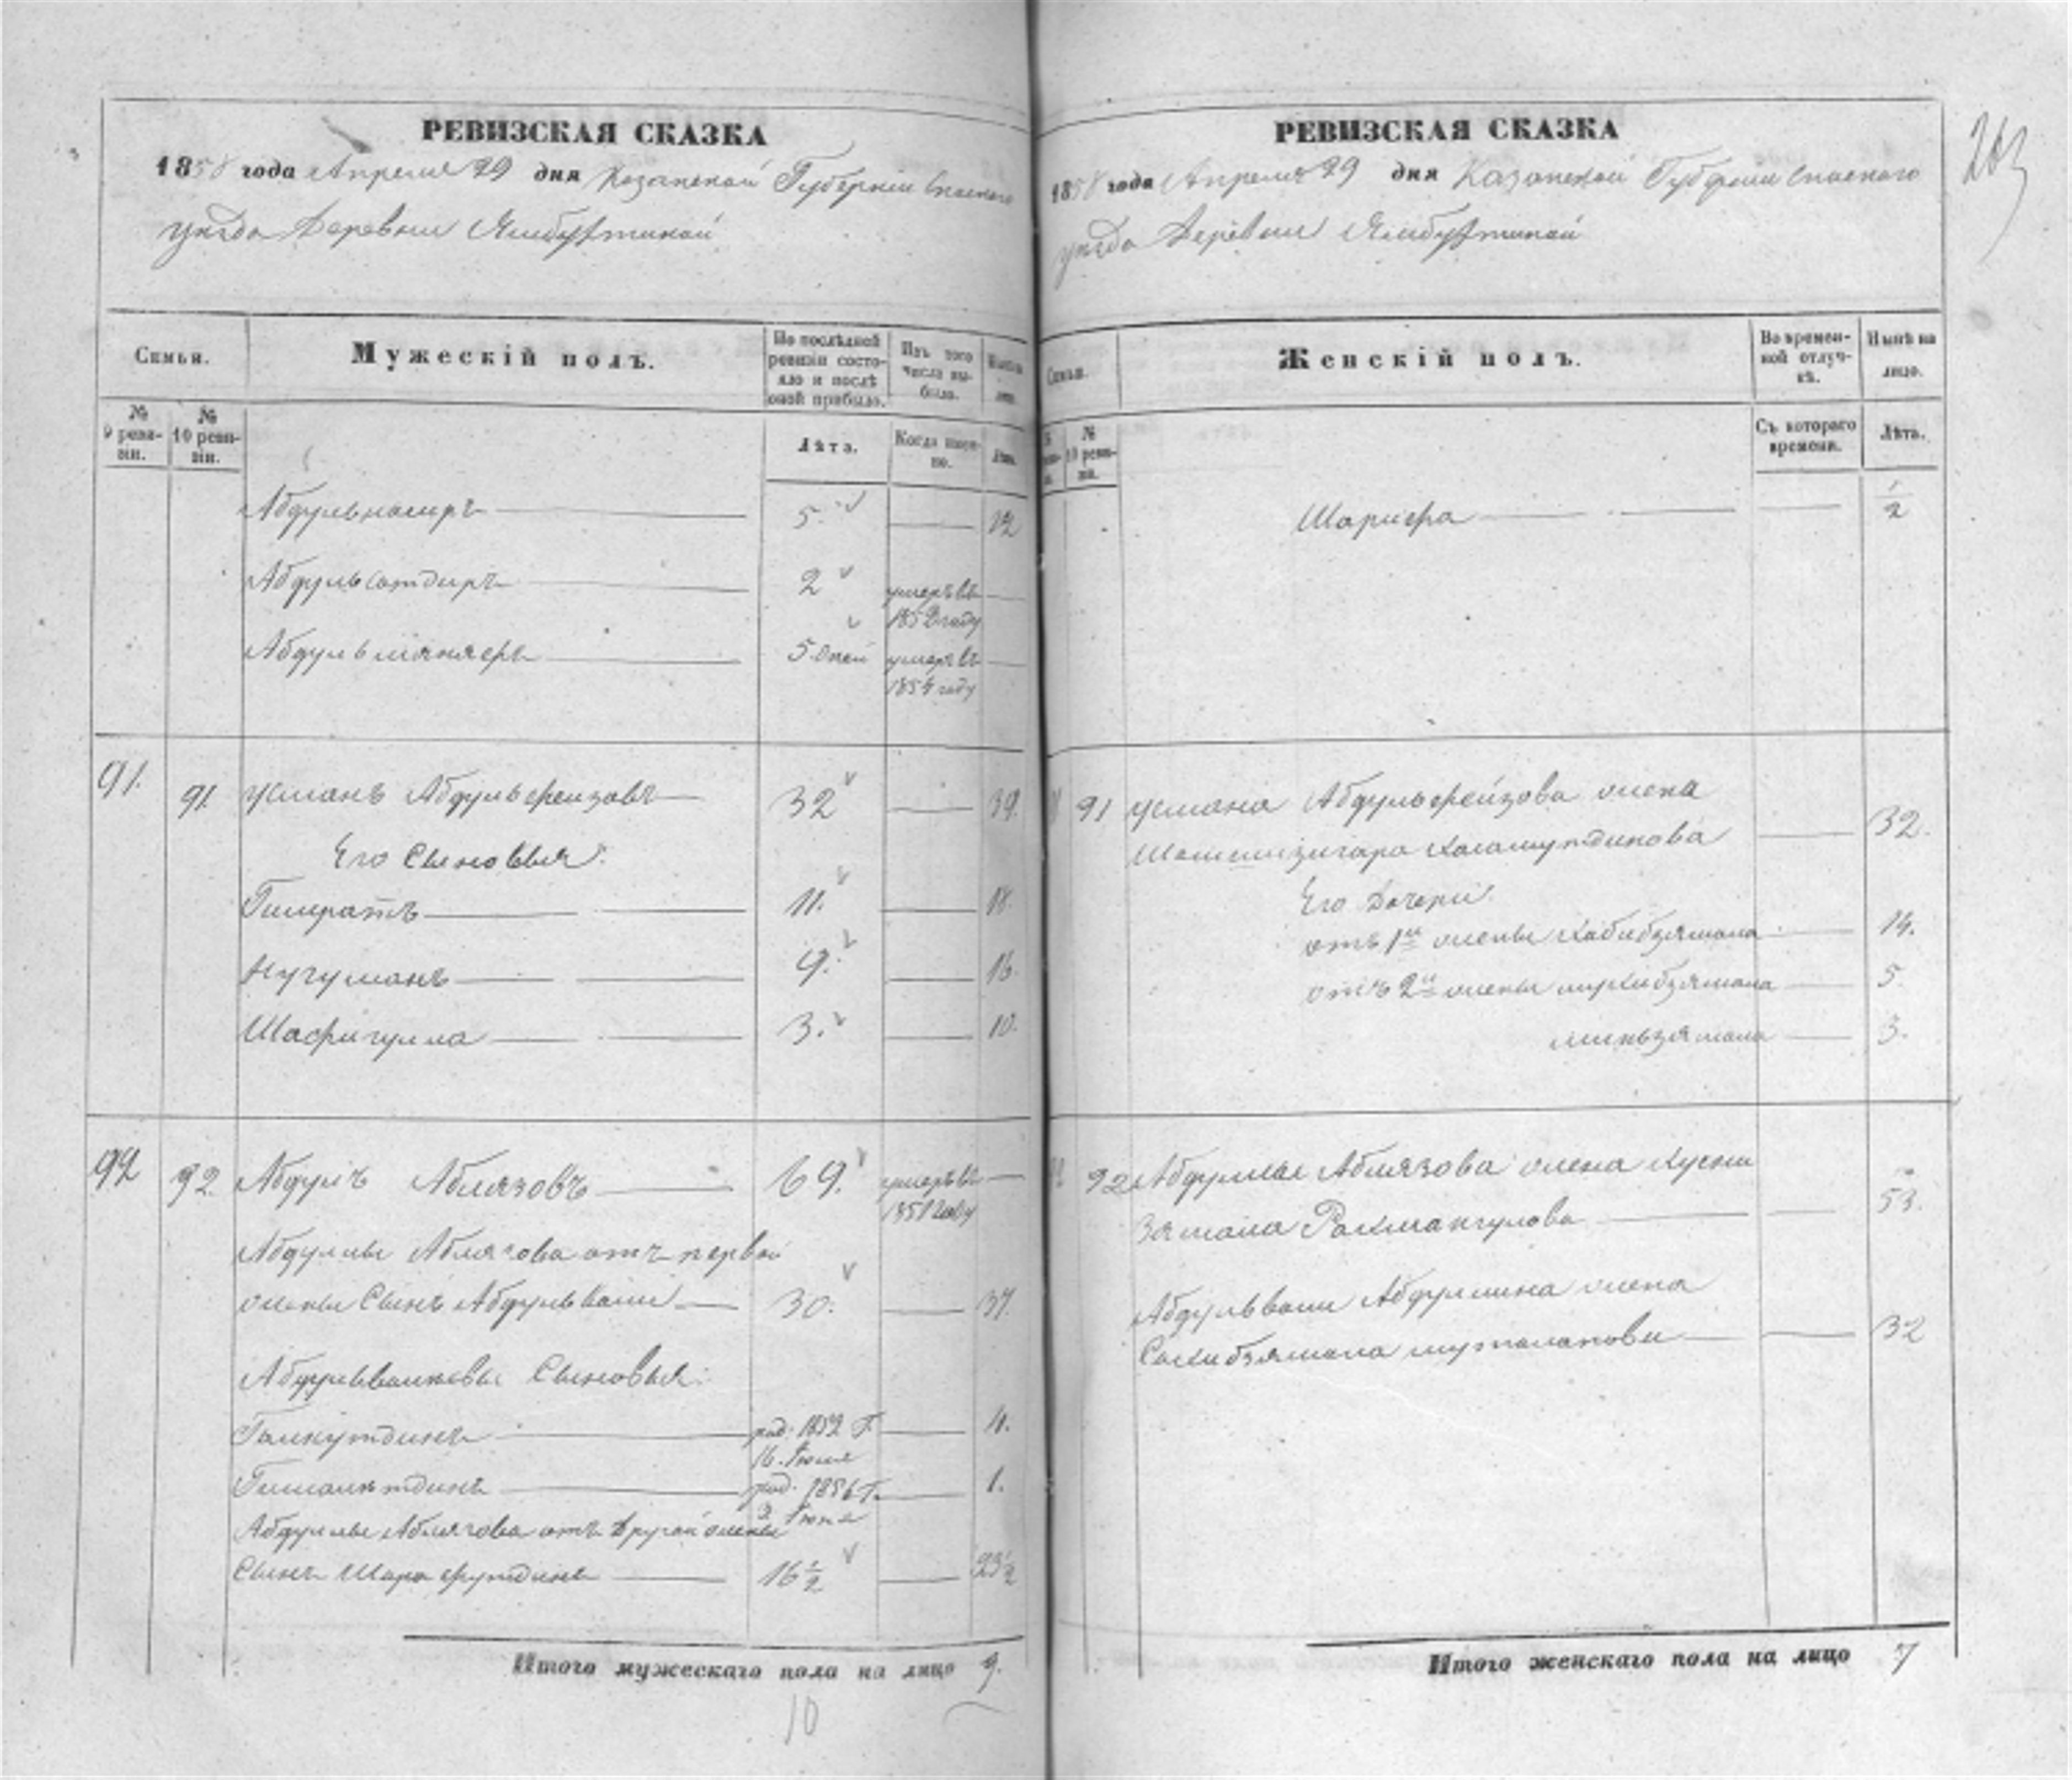 РЕВИЗСКАЯ СКАЗКА
1858 года Апреля 29 дня Казанской Губернии Спаского
уезда Деревни Ямбухтиной
Семьи.
Мужескій полъ.
По послѣдней ревизіи состояло и послѣ оной прибыло.
Изъ того числа выбыло.
№ 9 ревизіи.
№ 10 ревизіи.
Лѣта.
Когда именно.
Лѣта.
Абдульнасыръ 5. 12
Абдуль 2 умеръ въ
1852 году
Абдуль 5 дней умеръ въ
1854 году
91. 91. Усманъ Абдульфеизовъ 32 39.
Его Сыновья:
11. 18.
Нугуманъ 9. 16.
Шафигулла 3. 10.
92 92. Абдулъ Аблязовъ 69. умеръ въ
1851 году
Абдулы Аблязова отъ первой
жены Сынъ Абдульвали 30. 37.
Сыновья:
род. 1852 Г.
16.
род. 1856 Г. 1.
Абдулы Аблязова отъ другой жены
Сынъ Шарафутдинъ 16 1/2 23 1/2
Итого мужескаго пола на лицо 9.
10
263
РЕВИЗСКАЯ СКАЗКА
1858 года Апреля 29 дня Казанской Губернии Спаского
уезда Деревни Ямбухтиной
Семьи.
Женскій полъ.
Во временной отлучкѣ.
Нынѣ на лицо.
№ 10 ревизіи.
Съ котораго времени.
Лѣта.
Шарифа 1/2
91 Усмана Абдульфеизова жена
32.
Его Дочери
отъ 1й жены Хабибзямала 14.
отъ 2й жены 5.
Миньзямала 3.
92 Абдулы Аблязова жена Хусни
зямала Рахмангулова 53.
Абдульвали Абдулина жена
Сахибзямала 32
Итого женскаго пола на лицо 7